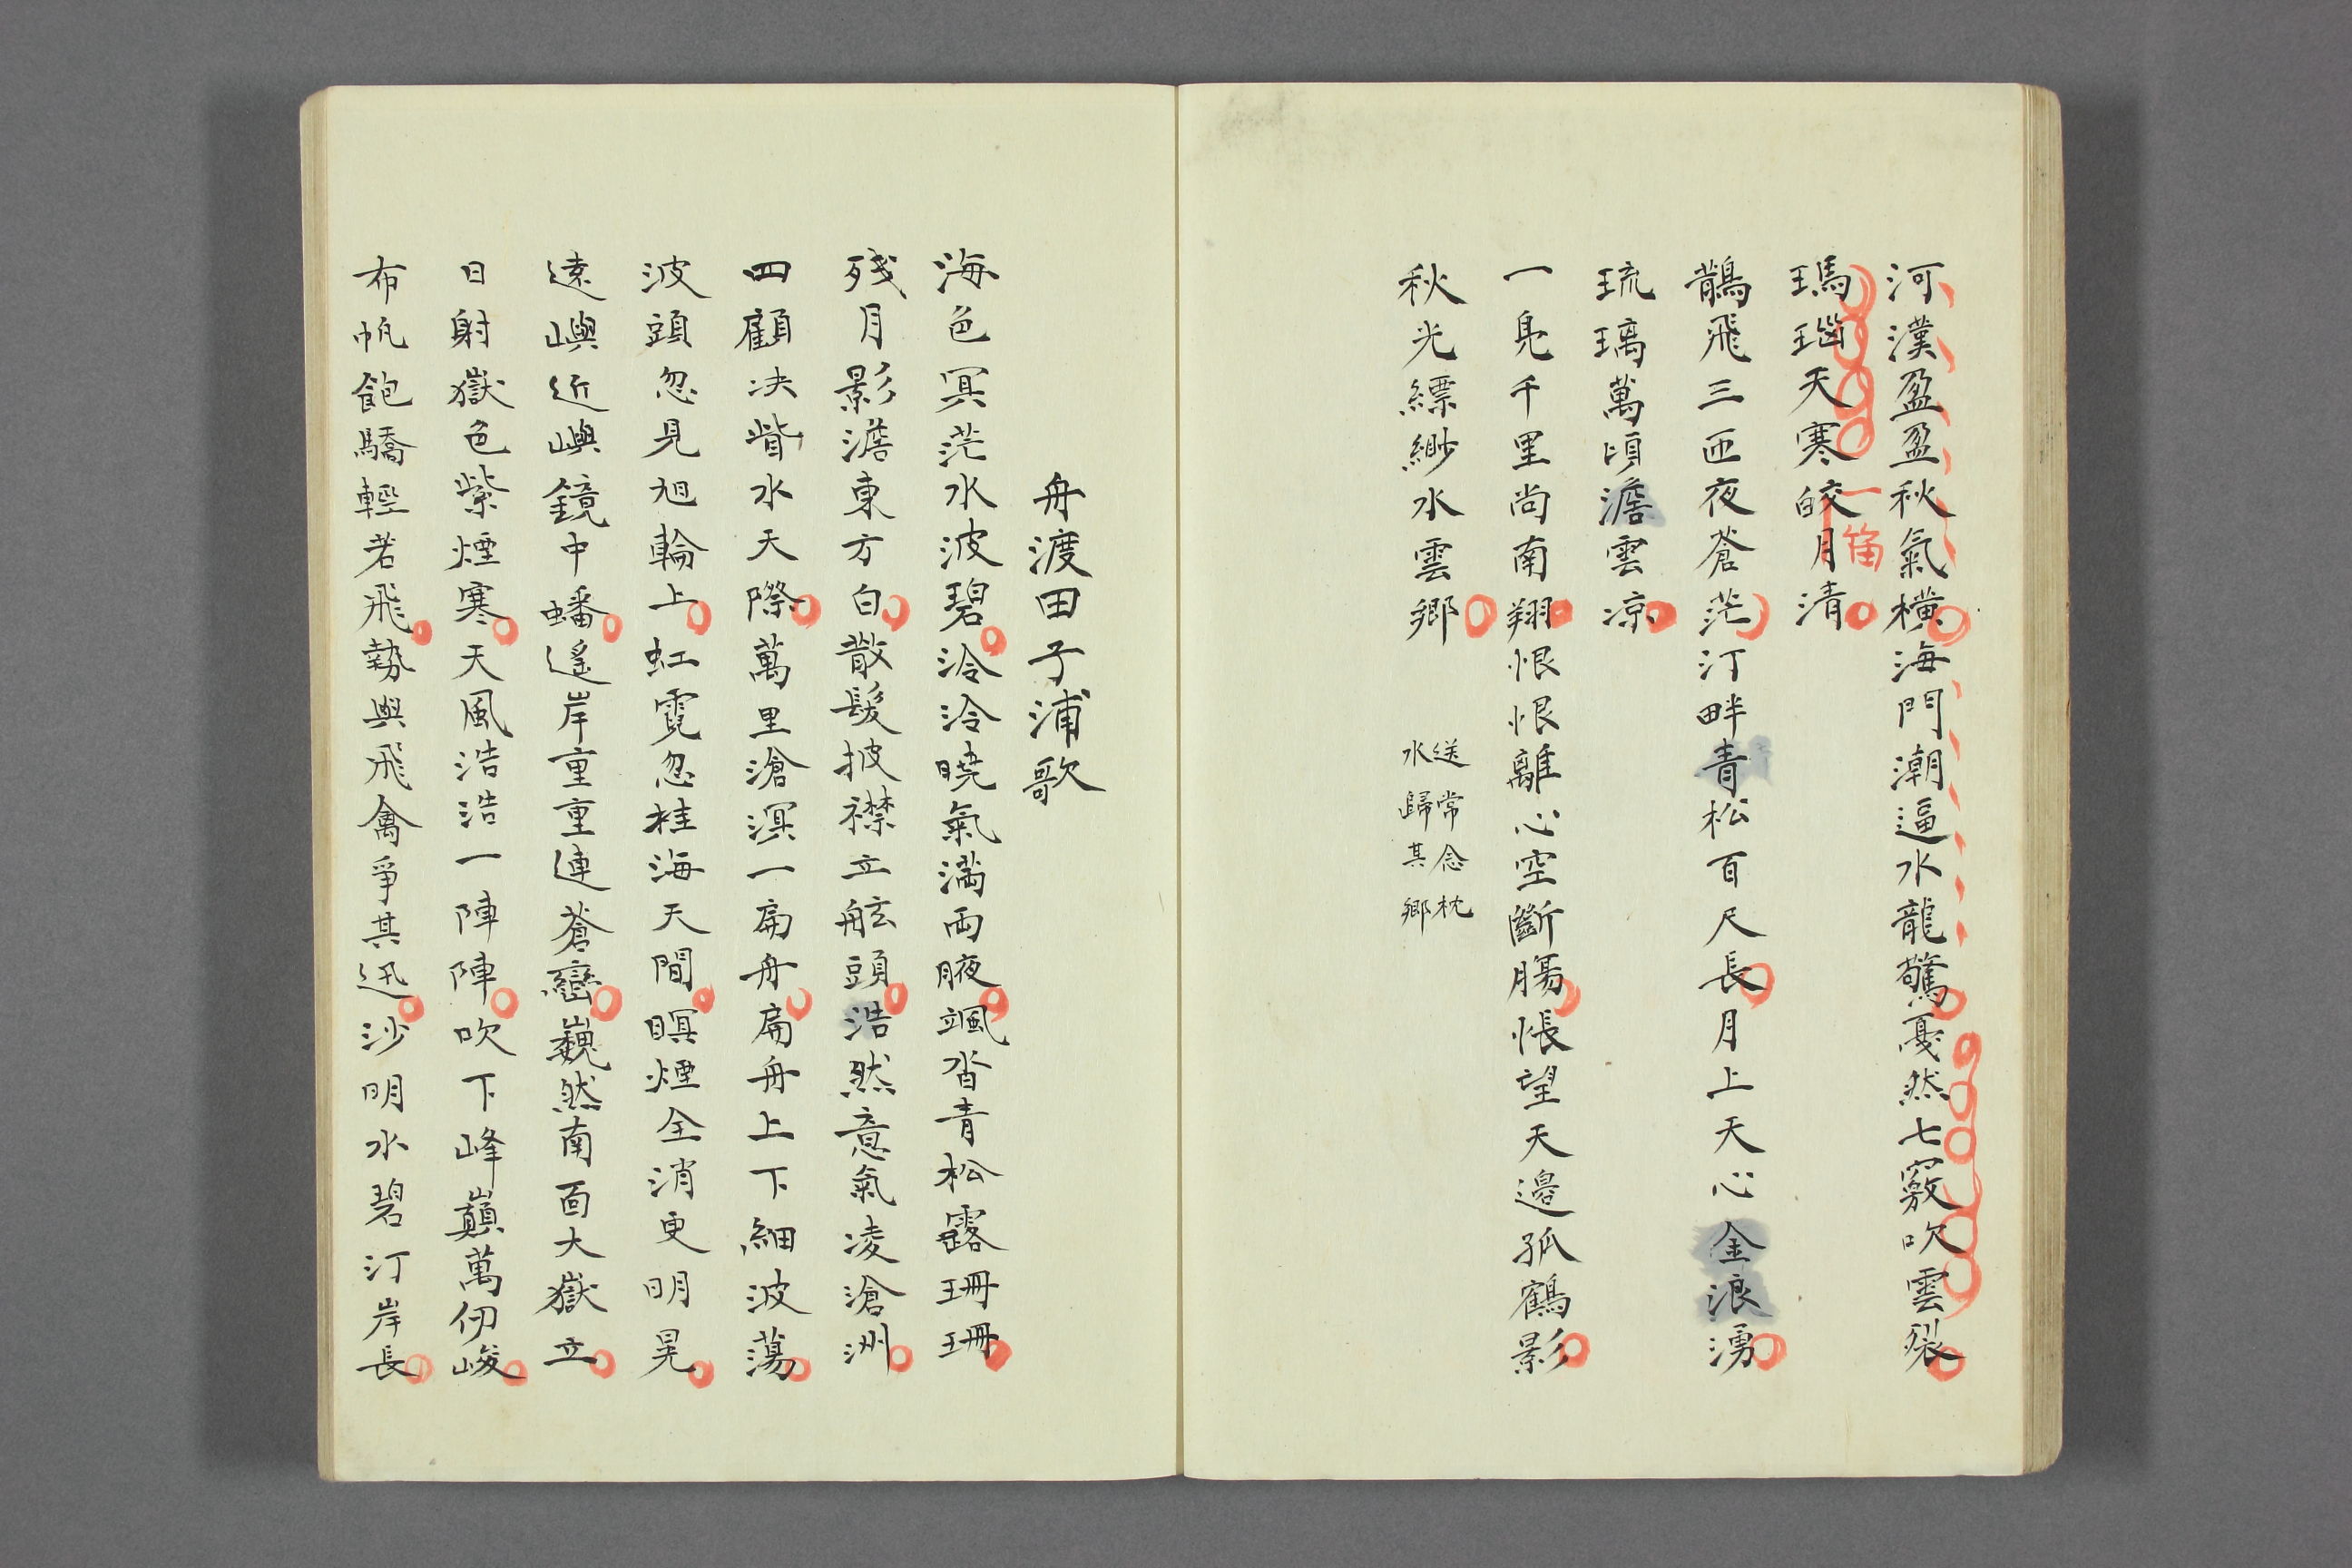 河漢盈盈秋氣橫海門潮逼水龍驚戞然七竅吹雲裂
瑪瑙天寒皎月清
一笛
鵲飛三匝夜蒼茫汀畔青松百尺長月上天心金浪湧
琉璃萬頃澹雲凉
一鳧千里尚南翔恨恨離心空斷膓悵望天邊孤鶴影
秋光縹緲水雲鄉
送常念枕
水歸其鄉
舟渡田子浦歌
海色冥茫水波碧泠泠曉氣満両腋颯沓青松露珊珊
残月影澹東方白散髮披襟立舷頭浩然意氣凌滄洲
四顧决眥水天際萬里滄溟一扁舟扁舟上下細波蕩
波頭忽見旭輪上虹霓忽挂海天間暝煙全消更明晃
遠嶼近嶼鏡中蟠遙岸重重連蒼巒巍然南面大嶽立
日射嶽色紫煙寒天風浩浩一陣陣吹下峰巔萬仞峻
布帆飽驕輕若飛勢與飛禽爭其迅沙明水碧汀岸長